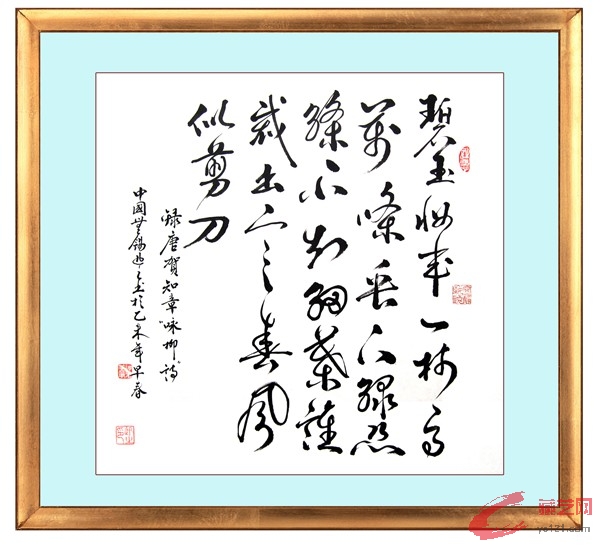 碧玉妝成一樹高
萬條垂下綠絲
絛不知細葉誰
裁出二月春風
似剪刀
錄唐賀知章咏柳詩
中國無錫 書於乙未年早春
藏艺网
yc121.com